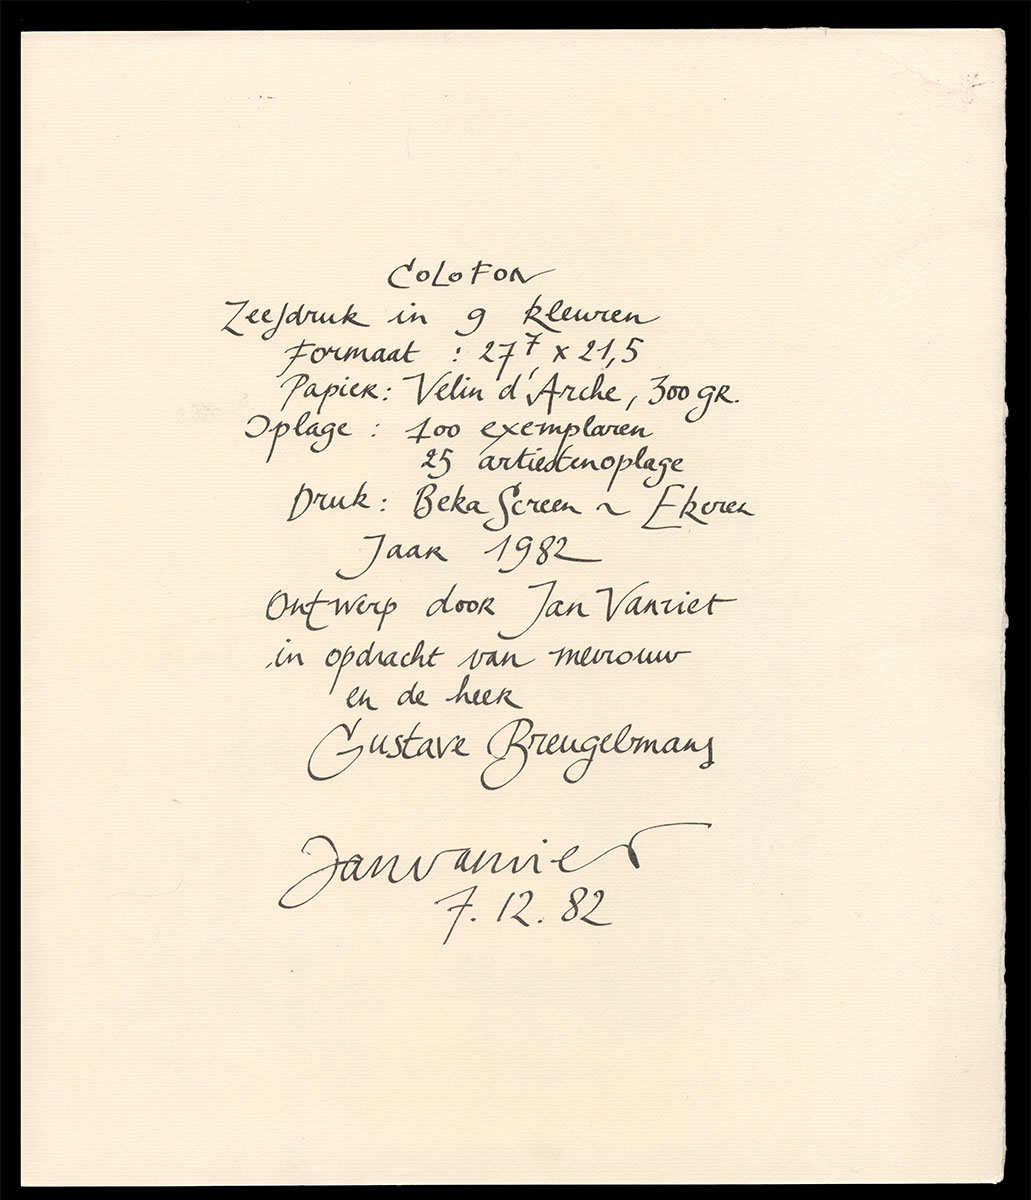 COLOFON
Zeefdruk in 9 kleuren
Formaat : 27⁷ x 21,5
Papier: Vélin d'Arche, 300 gr.
Oplage : 100 exemplaren
25 artiestenoplage
Druk: Beka Screen ~ Ekeren
Jaar 1982
Ontwerp door Jan Vanriet
in opdracht van mevrouw
en de heer
Gustave Breugelmans
Jan Vanriet
7.12.82